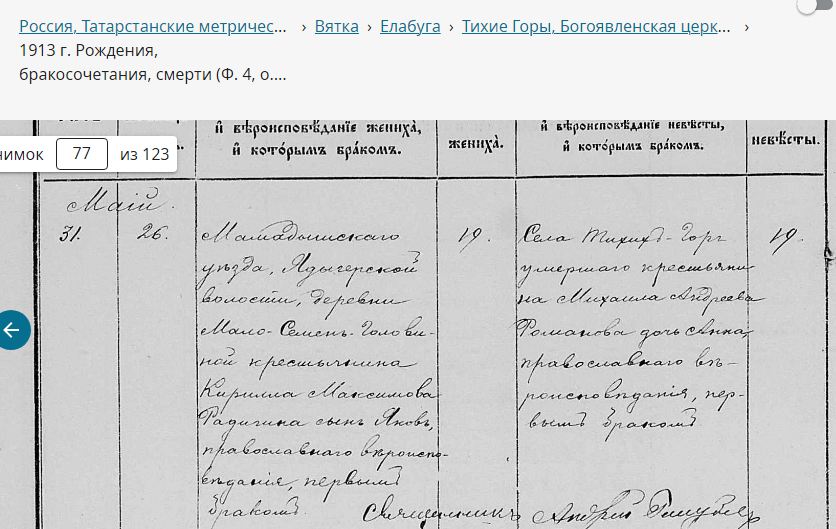 Россия, Татарстанские метричес... › Вятка › Елабуга › Тихие Горы, Богоявленская церк... ›
1913 г. Рождения,
бракосочетания, смерти (Ф. 4, о....
нимок 77 из 123
и҆ вѣроисповѣданїе жениха̀,
и҆ кото́рымъ бра́комъ.
жениха̀.
и҆ вѣроисповѣданїе невѣ́сты,
и҆ кото́рымъ бра́комъ.
невѣ́сты.
Маiй.
31.
26.
Мамадышскаго
уѣзда, Ядыгерской
волости, деревни
Мало-Семенъ-Голови-
ной крестьянина
Кирилла Максимова
Радигина сынъ Яковъ,
православнаго вѣроиспо-
вѣданiя, первымъ
бракомъ.
19.
Села Тихихъ-Горъ
умершаго крестьяни
на Михаила Андреева
Романова дочь Анна,
православнаго вѣ-
роисповѣданiя, пер-
вымъ бракомъ
19.
Священникъ Андрей